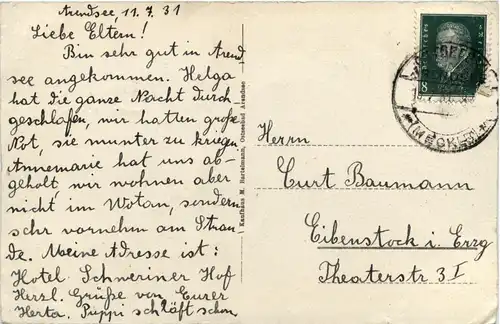 Arendsee, 11.7.31
Liebe Eltern!
Bin sehr gut in Arend
see angekommen. Helga
hat die ganze Nacht durch
geschlafen, wir hatten große
Not, sie munter zu kriegen
Annemarie hat uns ab-
geholt, wir wohnen aber
nicht im Wotan, sondern
sehr vornehm am Stran
de. Meine Adresse ist:
Hotel Schweriner Hof
Herzl. Grüße von Eurer
Herta. Puppi schläft schon.
Kaufhaus M. Bartelmann, Ostseebad Arendsee
8
(MECKLB)
Herrn
Curt Baumann
Eibenstock i. Erzg
Theaterstr 3 I